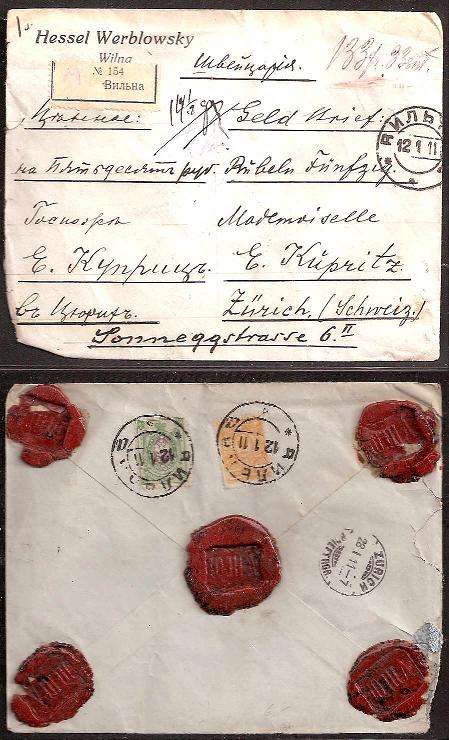 Hessel Werblowsky
Wilna
№ 154
Вильна
Швейцарія.
133 fr. 33 cent.
Цѣнное: Geld Brief:
на Пятьдесят руб. Rubeln Fünfzig.
Госпожѣ Mademoiselle
Е. Куприцъ. E. Kupritz.
въ Цюрихъ. Zürich, (Schweiz.)
Sonneggstrasse 6.II
ВИЛЬНА
12 1 11
12 1 11
12 1 11
ZÜRICH
28 I 11 - 7